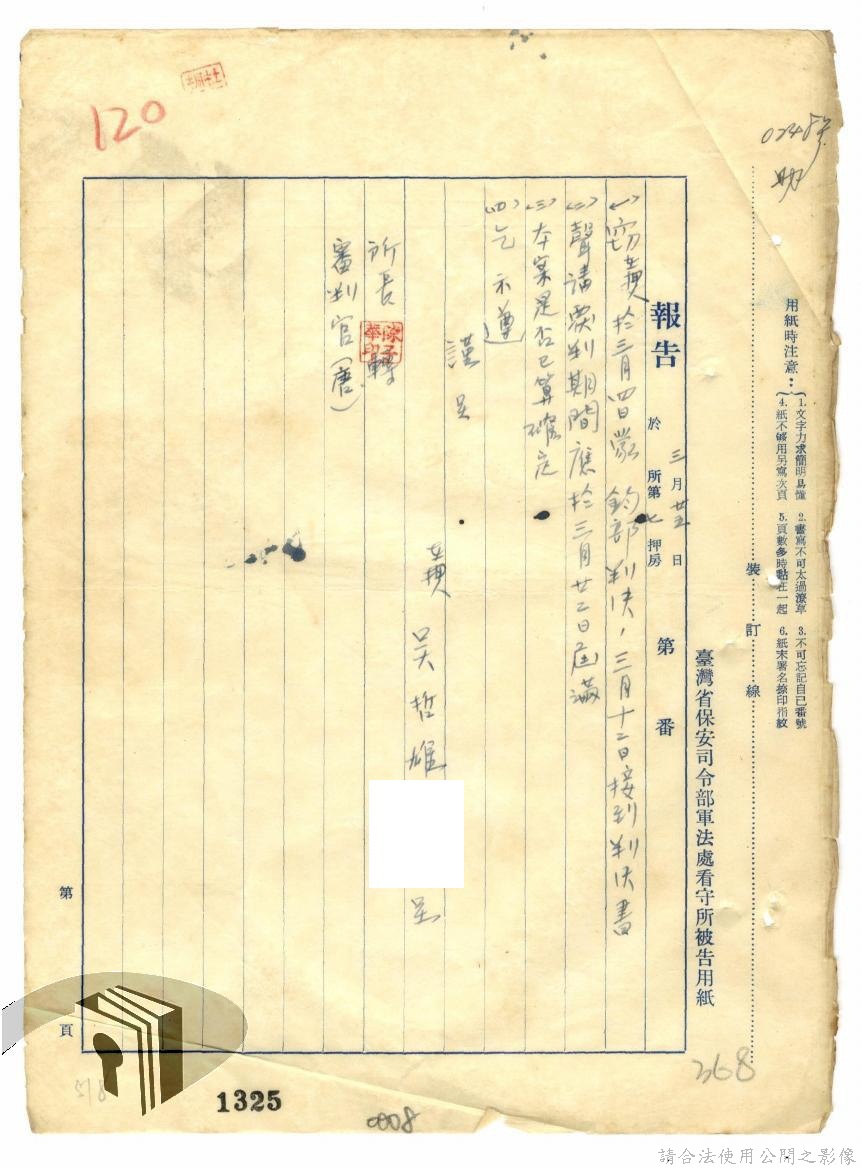 120
0248號
助
用紙時注意：
1.文字力求簡明易懂 2.書寫不可太過潦草 3.不可忘記自己番號
4.紙不够用另寫次頁 5.頁數多時黏在一起 6.紙末署名捺印指紋
裝訂線
臺灣省保安司令部軍法處看守所被告用紙
報告 於 三月廿五日 所第七押房 第 番
(一)竊 於三月四日蒙 鈞部判決，三月十二日接到判決書
(二)聲請覆判期間應於三月廿二日屆滿
(三)本案是否已算確定
(四)乞示遵
謹呈
所長 轉
審判官(唐)
吳哲雄 呈
第 頁
368
518
1325
0008
請合法使用公開之影像